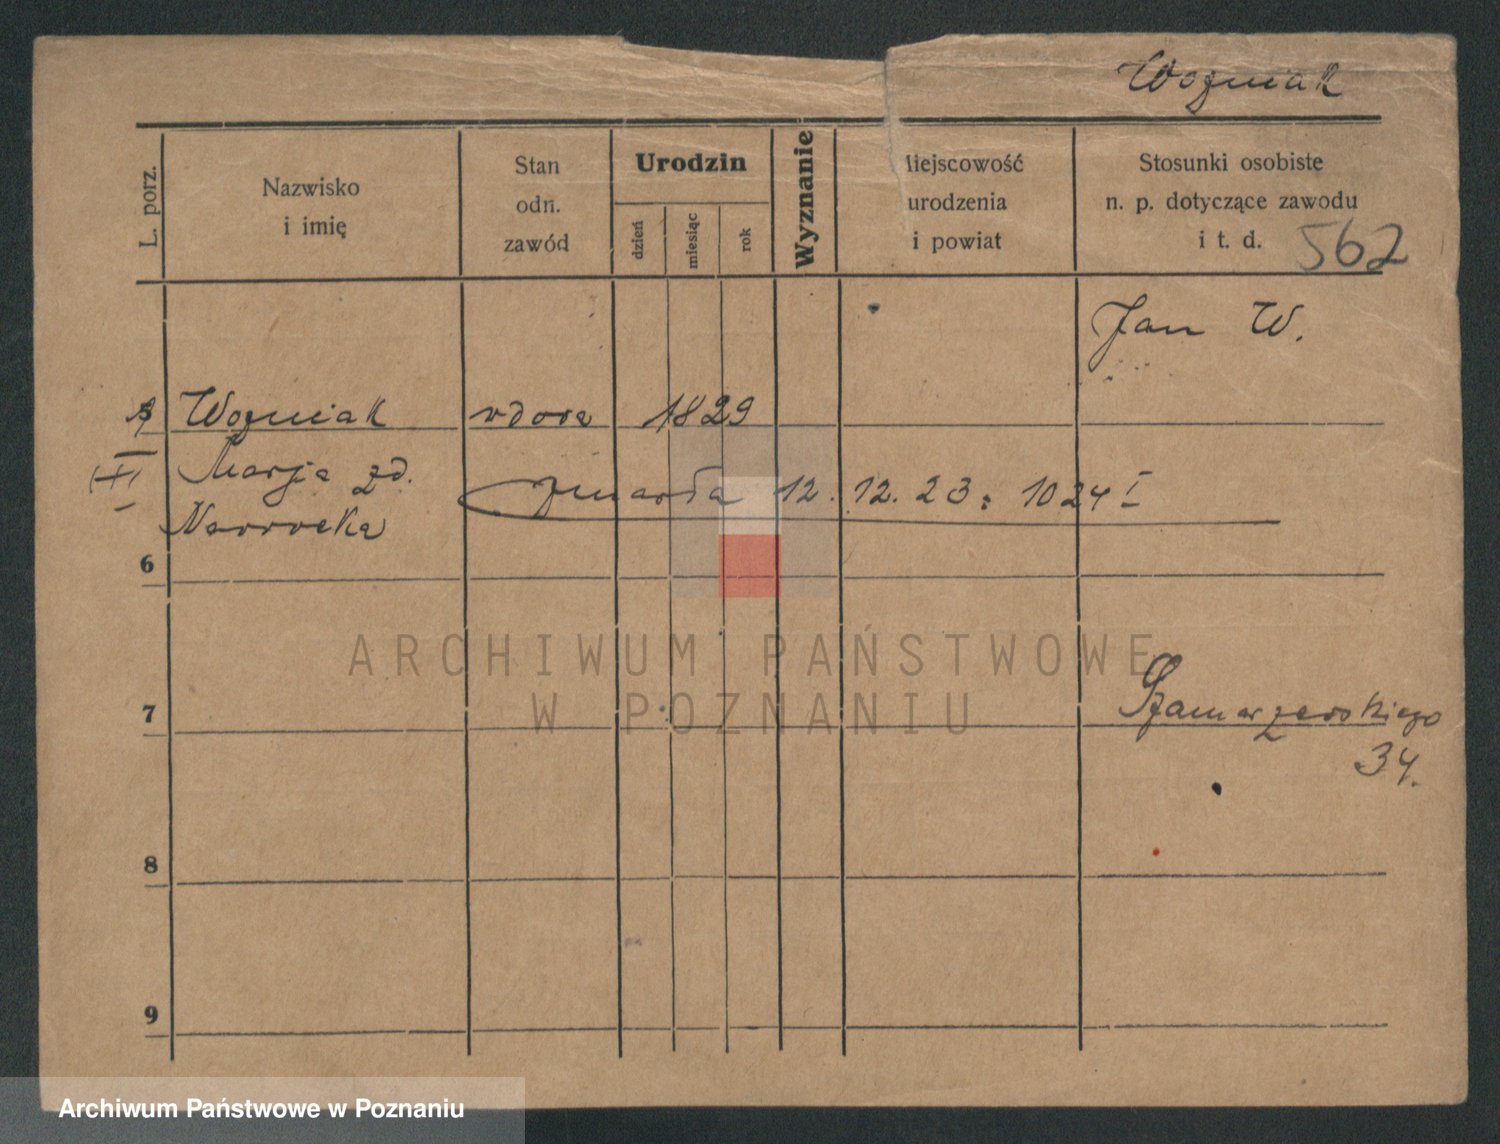 Wozniak
L. porz.
Nazwisko
i imię
Stan
odn.
zawód
Urodzin
dzień
miesiąc
rok
Wyznanie
Miejscowość
urodzenia
i powiat
Stosunki osobiste
n. p. dotyczące zawodu
i t. d.
562
Jan W.
Wozniak wdowa 1829
Marja zd.
zmarła 12. 12. 23: 1024 I
Nawrocka
6
7
Szamarzewskiego
34.
8
9
ARCHIWUM PAŃSTWOWE
W POZNANIU
Archiwum Państwowe w Poznaniu